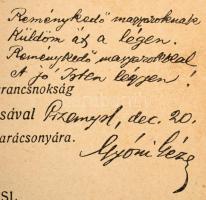 Reménykedő magyaroknak
Küldöm át a légen.
Reménykedő magyarokkal
A jó Isten légyen!
arancsnokság
sával Przemysl, dec. 20.
arácsonyára.
Gyóni Géza
SI.